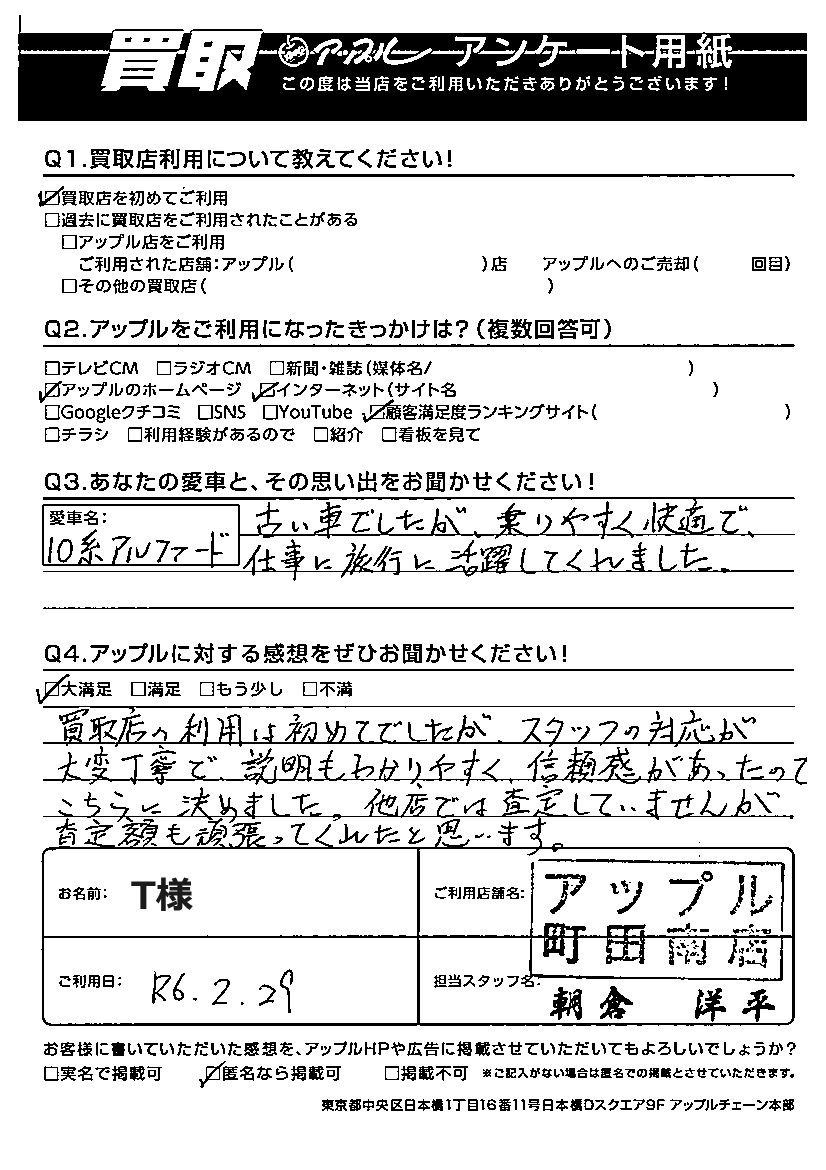 買取 アップル アンケート用紙
この度は当店をご利用いただきありがとうございます！
Q1.買取店利用について教えてください！
☑買取店を初めてご利用
□過去に買取店をご利用されたことがある
□アップル店をご利用
ご利用された店舗：アップル（ ）店 アップルへのご売却（ 回目）
□その他の買取店（ ）
Q2.アップルをご利用になったきっかけは？（複数回答可）
□テレビCM □ラジオCM □新聞・雑誌（媒体名/ ）
☑アップルのホームページ ☑インターネット（サイト名 ）
□Googleクチコミ □SNS □YouTube ☑顧客満足度ランキングサイト（ ）
□チラシ □利用経験があるので □紹介 □看板を見て
Q3.あなたの愛車と、その思い出をお聞かせください！
愛車名：
10系アルファード
古い車でしたが、乗りやすく快適で、
仕事に旅行に活躍してくれました。
Q4.アップルに対する感想をぜひお聞かせください！
☑大満足 □満足 □もう少し □不満
買取店の利用は初めてでしたが、スタッフの対応が
大変丁寧で、説明もわかりやすく、信頼感があったので
こちらに決めました。他店では査定していませんが、
査定額も頑張ってくれたと思います。
お名前： T様
ご利用店舗名： アップル
町田南店
ご利用日： R6.2.29
担当スタッフ名： 朝倉 洋平
お客様に書いていただいた感想を、アップルHPや広告に掲載させていただいてもよろしいでしょうか？
□実名で掲載可 ☑匿名なら掲載可 □掲載不可 ※ご記入がない場合は匿名での掲載とさせていただきます。
東京都中央区日本橋1丁目16番11号日本橋Dスクエア9F アップルチェーン本部